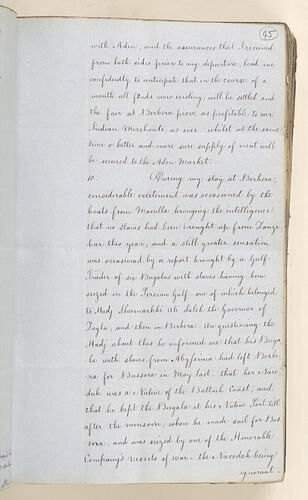 45
with Aden, and the assurances that I received
from both sides prior to my departure, lead me
confidently to anticipate that in the course of a
month all feuds now existing, will be settled and
the fair at Berbera prove as profitable to our
Indian Merchants, as ever, whilst at the same
time a better and more sure supply of meat will
be secured to the Aden Market.—
10. During my stay at Berbera,
considerable excitement was occasioned by the
boats from Maculla bringing the intelligence
that no slaves had been brought up from Zanzi-
bar this year, and a still greater sensation
was occasioned by a report brought by a Gulf
Trader of six Bugalas with slaves having been
seized in the Persian Gulf one of which belonged
to Hadj Shurmarkhi Ali Saleh the Governor of
Zeyla, and then in Berbera. On questioning the
Hadj about this he informed me that his Buga-
la with slaves from Abyssinia had left Berbe-
ra for Bussora in May last, that her Naco-
dah was a Native of the Battinah Coast, and
that he kept the Bugala at his Native Port till
after the monsoon, when he made sail for Bus-
sora, and was seized by one of the Honorable
Company's vessels of war — the Nacodah being
ignorant